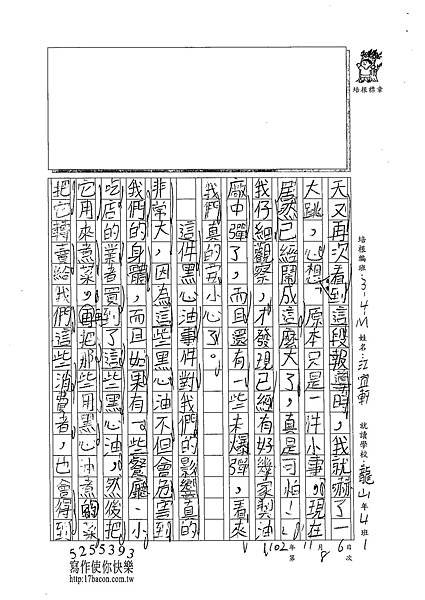 培根標章
培根編班 3.4M 姓名 就讀學校 龍山 年 4 班 1
天又再次看到這段報導時，我就嚇了一
大跳，心想：原本只是一件小事，現在
居然已經鬧成這麼大了，真是可怕！
我仔細觀察，才發現已經有好幾家製油
廠中彈了，而且還有一些未爆彈，看來
我們真的要小心了。
這件黑心油事件對我們的影響真的
非常大，因為這些黑心油不但會危害到
我們的身體，而且如果有一些餐廳、小
吃店的業者買到了這些黑心油，然後把
它用來煮菜，再把那些用黑心油煮的菜
把它轉賣給我們這些消費者，也會得到
102年 11月 6日
第 8 次
5255393
寫作使你快樂
http://17bacon.com.tw